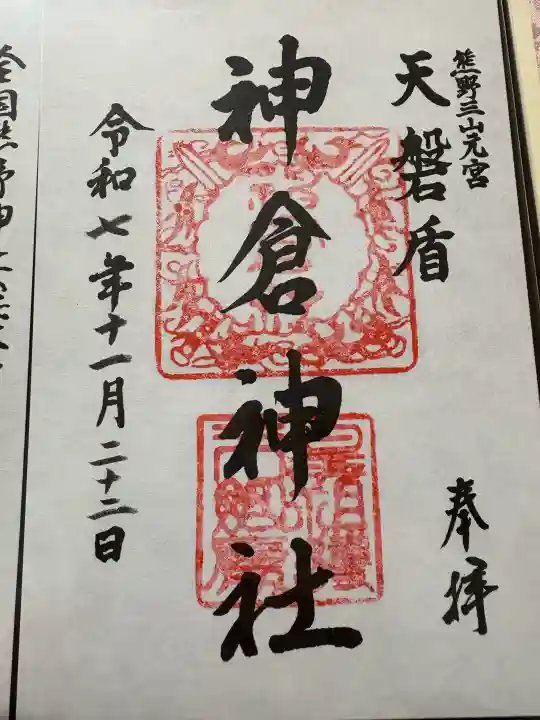 熊野三山元宮
天磐盾
奉拝
神倉神社
令和七年十一月二十二日
全国熊野神社